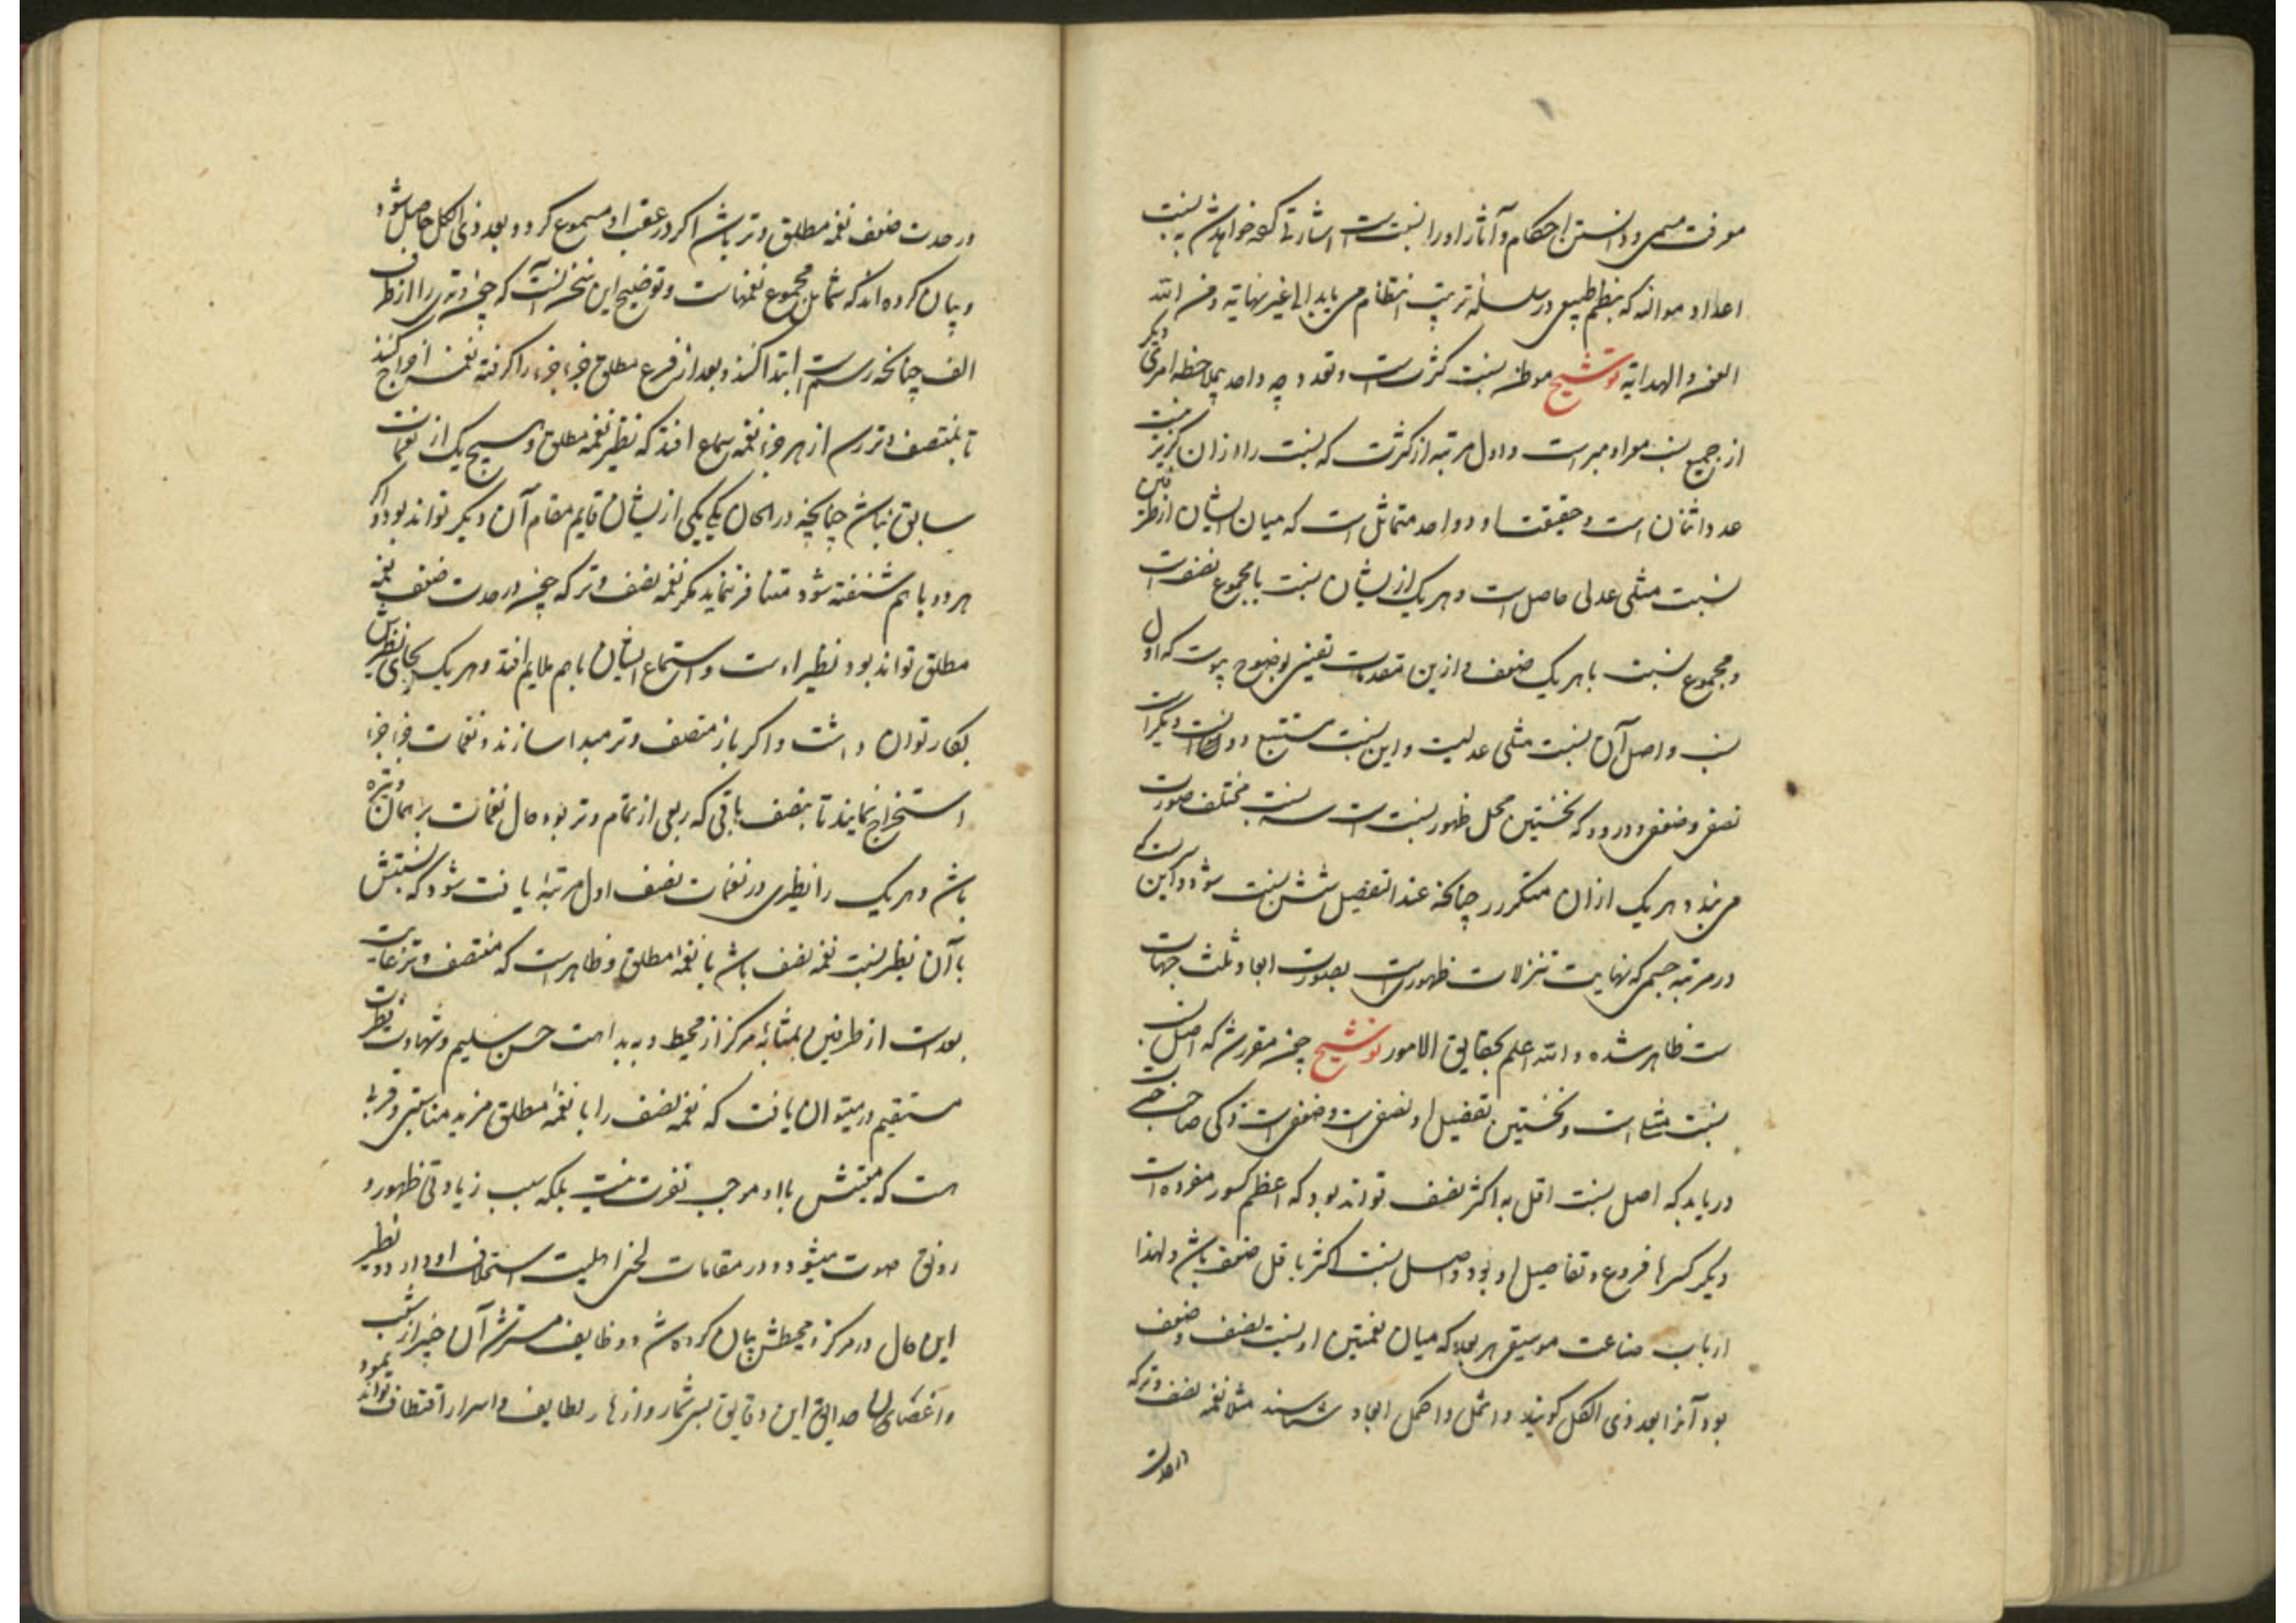 معرفت مسمی و دانستن احکام و آثار او را نسبت است اشارتی کفه خواهد شد به نسبت
اعداد موالفه که بنظم طبیعی در سلسلهٔ ترتیب انتظام می یابد الی غیر نهایة و من الله
العون و الهدایة توشیح موطن نسبت کثرت است و تعدد و چه واحد بملاحظه امری دیگر
از جمیع نسب معرا و مبراست و اول مرتبه از کثرت که نسبت را از آن گزیر نیست
عدد اثنان است و حقیقت او دو واحد متماثل است که میان ایشان از طرفین
نسبت مثلی عدلی حاصل است و هر یک از ایشان نسبت با مجموع نصف است
و مجموع نسبت با هر یک ضعف و ازین مقدمات یقینی بوضوح پیوست که اول
نسب و اصل آن نسبت مثلی عدلیت و این نسبت مستتبع دو نسبت دیگر است
نصفی و ضعفی و در دو که نخستین محل ظهور نسبت است سه نسبت مختلف صورت
می بندد و هر یک از آن متکرر چنانکه عند التفصیل شش نسبت شود و این
در مرتبه جسمی که نهایت تنزلات ظهوری است بصورت ابعاد ثلث جهات
ست ظاهر شده و الله اعلم بحقایق الامور توشیح چون مقرر شد که اصل نسب
نسبت مثلی است و نخستین تفصیل او نصفی است و ضعفی است زکی صاحب
دریابد که اصل نسبت اقل به اکثر نصف تواند بود که اعظم کسور مفرده است
و دیگر کسرها فروع و تفاصیل او بود و اصل نسبت اکثر باقل ضعف باشد و لهذا
ارباب صناعت موسیقی هر بعد که میان نغمتین او نسبت نصف و ضعف
بود آنرا بعد ذی الکل گویند و اشمل و اکمل ابعاد شناسند مثلا نغمه نصف وتر که
در حدت
در حدت ضعف نغمه مطلق وتر باشد اگر در عقب او مسموع گردد بعد ذی الکل حاصل شود
و بیان کرده اند که شامل مجموع نغمهاست و توضیح این سخن آنست که چون وتری را از طرف
الف چنانکه رسم است ابتدا کنند و بعد از قرع مطلق جزء جزء را گرفته نغمه اخراج کنند
تا بمنتصف وتر رسد از هر جزء نغمه بسماع افتد که نظیر نغمه مطلق و هیچ یک از نغمات
سابق نباشد چنانچه در الحان یکی از ایشان قایم مقام آن دیگر تواند بود و اگر
هر دو باهم شنفته شود متنافر نماید مگر نغمه نصف وتر که چون در حدت ضعف نغمه
مطلق تواند بود نظیر اوست و استماع ایشان باهم ملایم افتد و هر یک بجای نظیرش
بکار توان داشت و اگر باز منتصف وتر مبدا سازند و نغمات جزء جزء
استخراج نمایند تا بنصف باقی که ربعی از تمام وتر بود حال نغمات بر همان وتیره
باشد و هر یک را نظیری در نغمات نصف اول مرتبه یافت شود که نسبتش
با آن نظیر نسبت نغمه نصف باشد با نغمهٔ مطلق و ظاهر است که منتصف وتر غایت
بعد است از طرفین بمثابه مرکز از محیط و به بداهت حس سلیم و شهادت فطرت
مستقیم در میتوان یافت که نغمه نصف را با نغمهٔ مطلق مزید مناسبتی و قربی
هست که معیتش با او موجب نفرت نیست بلکه سبب زیادتی ظهور و
رونق صوت میشود و در مقامات لحنی اهلیت استخلاف او دارد و نظیر
این حال در مرکز و محیطش بیان کرده شد و وظایف مسترشد آن خبر از شعب
و اغصان حدایق این دقایق بسی ثمار و ازهار لطایف و اسرار اقتطاف تواند نمود